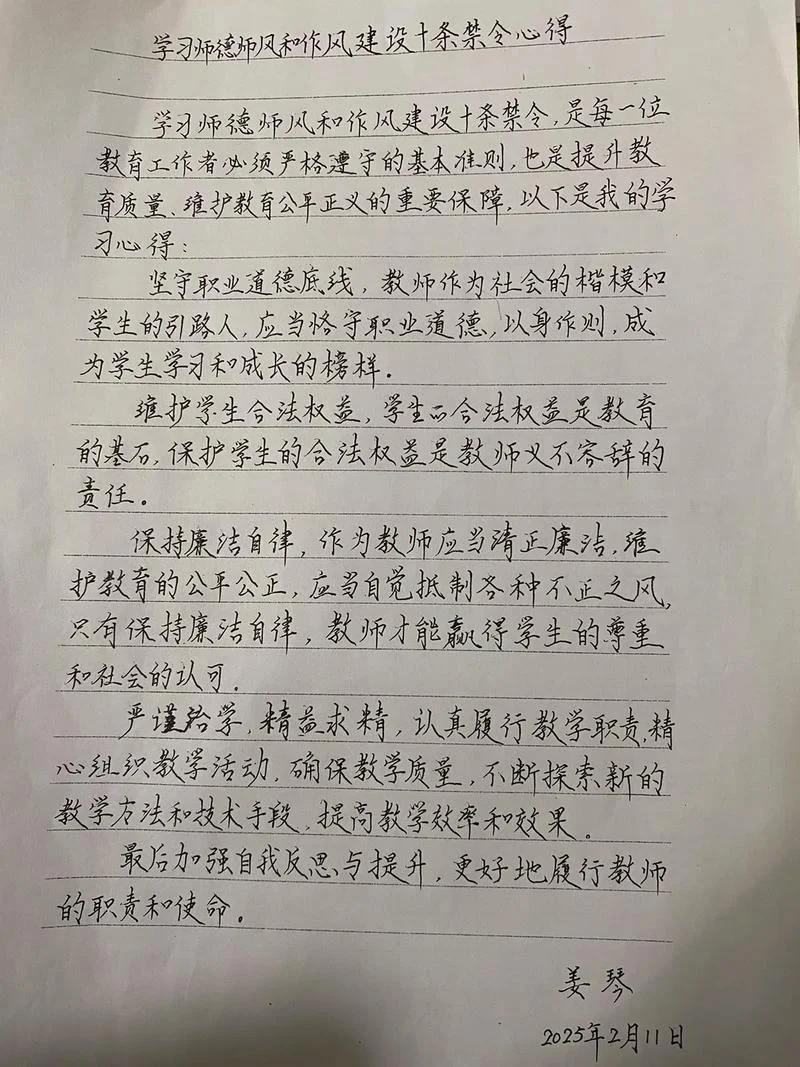 学习师德师风和作风建设十条禁令心得
学习师德师风和作风建设十条禁令,是每一位
教育工作者必须严格遵守的基本准则,也是提升教
育质量、维护教育公平正义的重要保障,以下是我的学
习心得:
坚守职业道德底线,教师作为社会的楷模和
学生的引路人,应当恪守职业道德,以身作则,成
为学生学习和成长的榜样.
维护学生合法权益,学生的合法权益是教育
的基石,保护学生的合法权益是教师义不容辞的
责任.
保持廉洁自律,作为教师应当清正廉洁,维
护教育的公平公正,应当自觉抵制各种不正之风,
只有保持廉洁自律,教师才能赢得学生的尊重
和社会的认可.
严谨治学,精益求精,认真履行教学职责,精
心组织教学活动,确保教学质量,不断探索新的
教学方法和技术手段,提高教学效率和效果.
最后加强自我反思与提升,更好地履行教师
的职责和使命.
姜琴
2025年2月11日